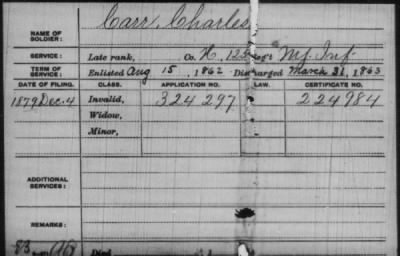 NAME OF SOLDIER: Carr, Charles
SERVICE: Late rank, Co. H, 125 Reg't N.Y. Inf
TERM OF SERVICE: Enlisted Aug 15, 1862 Discharged March 31, 1863
DATE OF FILING. CLASS. APPLICATION NO. LAW. CERTIFICATE NO.
1879 Dec. 4 Invalid, 324297 224984
Widow,
Minor,
ADDITIONAL SERVICES:
REMARKS:
Died